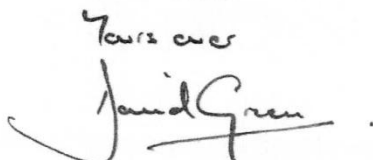 Yours ever
David Green